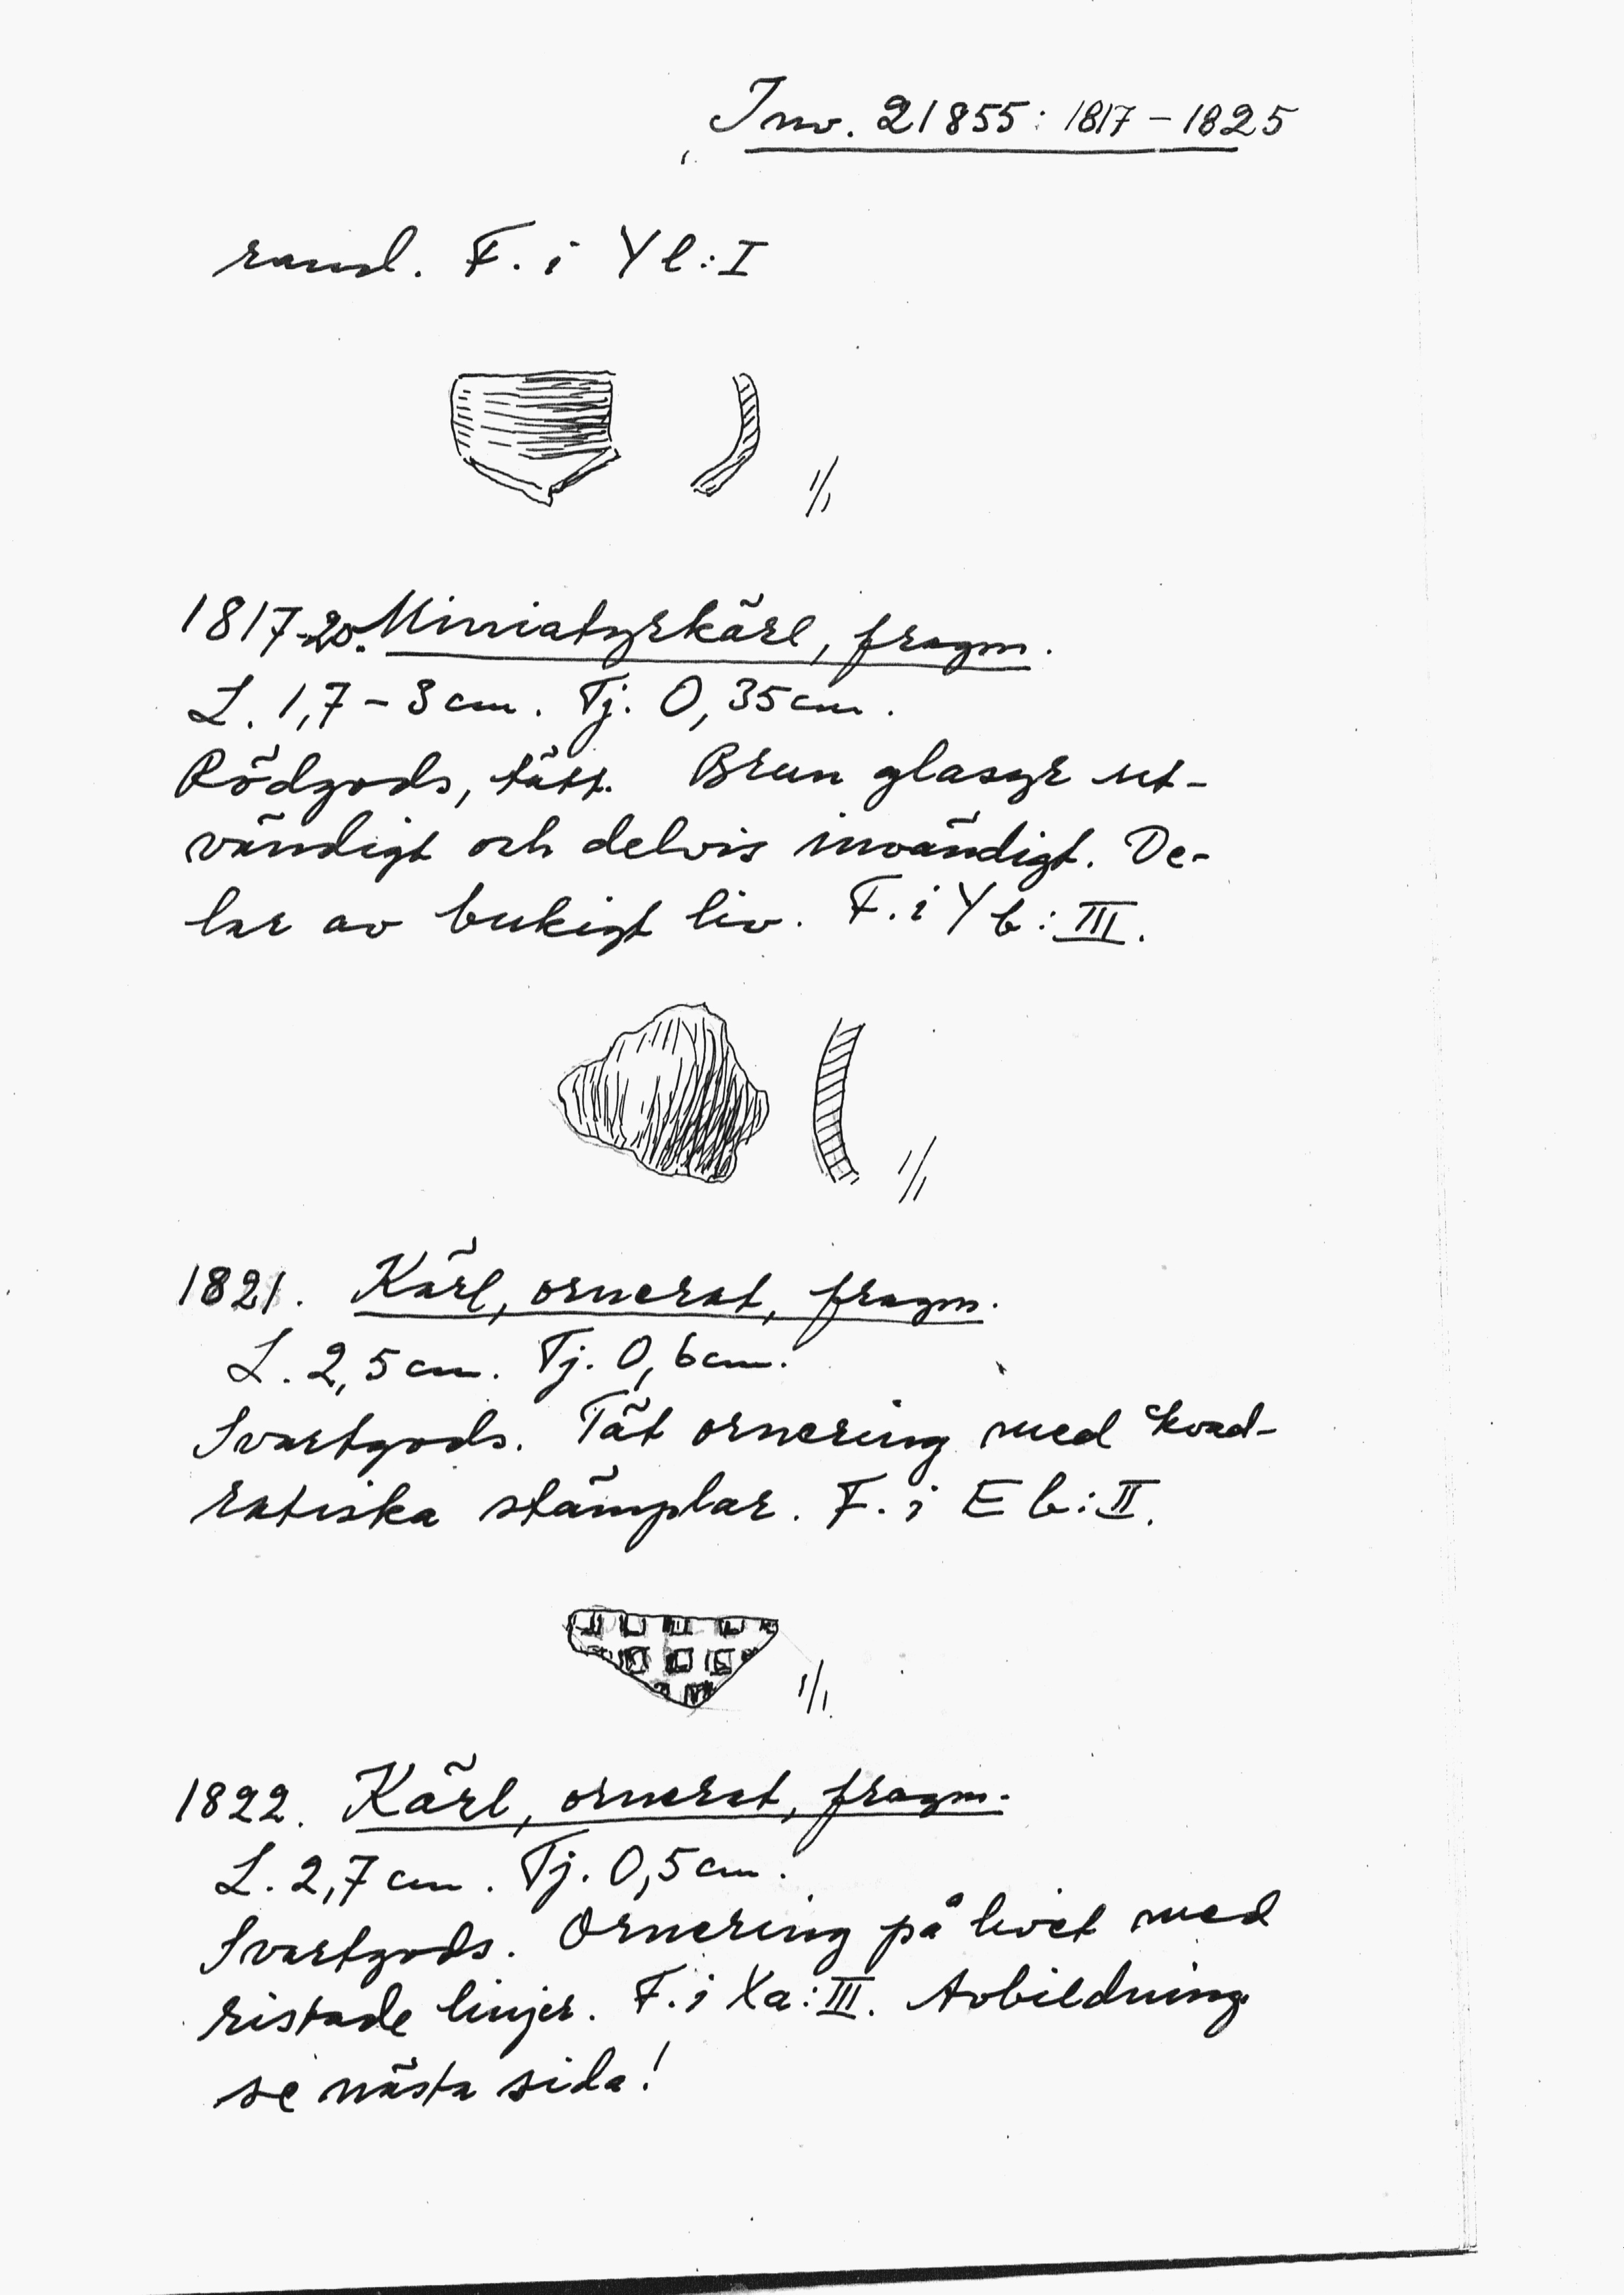 Inv. 21855: 1817-1825
rand. F. i Y l:I
1/1
1817-20. Miniatyrkärl, fragm.
L. 1,7-3 cm. Tj. 0,35 cm.
Rödgods, tätt. Brun glasyr ut-
vändigt och delvis invändigt. De-
lar av bukigt liv. F. i Y b:III.
1/1
1821. Kärl, ornerat, fragm.
L. 2,5 cm. Tj. 0,6 cm.
Svartgods. Tät ornering med kvad-
ratiska stämplar. F. i E b:II.
1/1
1822. Kärl, ornerat, fragm.
L. 2,7 cm. Tj. 0,5 cm.
Svartgods. Ornering på livet med
ristade linjer. F. i Xa:III. Avbildning
se nästa sida!